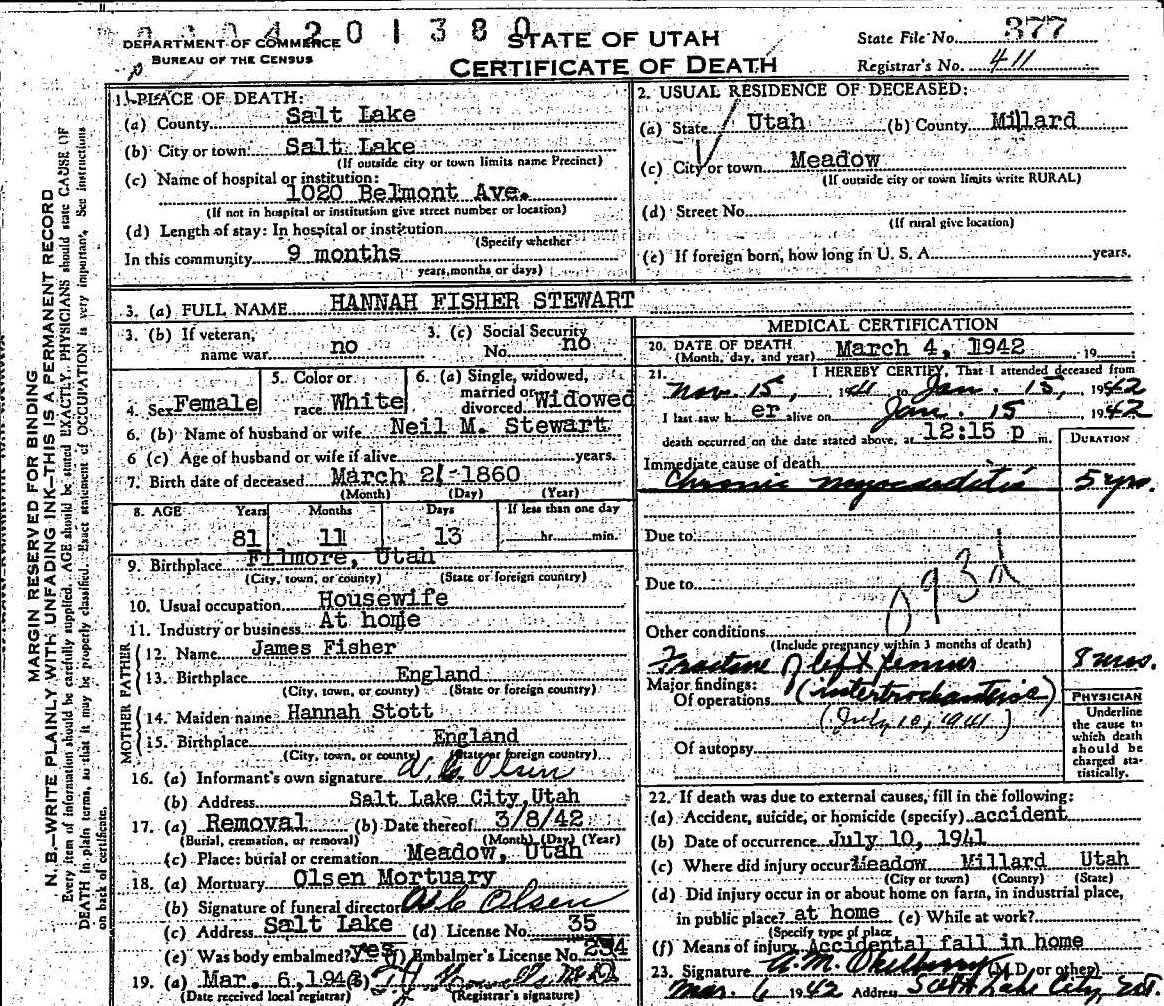 0 0 0 4 2 0 1 3 8 0
DEPARTMENT OF COMMERCE
BUREAU OF THE CENSUS
STATE OF UTAH
CERTIFICATE OF DEATH
State File No. 377
Registrar's No. 411
MARGIN RESERVED FOR BINDING
N. B.—WRITE PLAINLY WITH UNFADING INK—THIS IS A PERMANENT RECORD
Every item of information should be carefully supplied. AGE should be stated EXACTLY. PHYSICIANS should state CAUSE OF
DEATH in plain terms, so that it may be properly classified. Exact statement of OCCUPATION is very important. See instructions
on back of certificate.
1. PLACE OF DEATH:
(a) County Salt Lake
(b) City or town: Salt Lake
(If outside city or town limits name Precinct)
(c) Name of hospital or institution:
1020 Belmont Ave.
(If not in hospital or institution give street number or location)
(d) Length of stay: In hospital or institution
(Specify whether
In this community 9 months
years, months or days)
2. USUAL RESIDENCE OF DECEASED:
(a) State Utah (b) County Millard
(c) City or town Meadow
(If outside city or town limits write RURAL)
(d) Street No.
(If rural give location)
(e) If foreign born, how long in U. S. A. years.
3. (a) FULL NAME HANNAH FISHER STEWART
3. (b) If veteran, name war no
3. (c) Social Security No. no
4. Sex Female
5. Color or race White
6. (a) Single, widowed, married or divorced Widowed
6. (b) Name of husband or wife Neil M. Stewart
6 (c) Age of husband or wife if alive years.
7. Birth date of deceased March 21-1860
(Month) (Day) (Year)
8. AGE Years Months Days If less than one day
81 11 13 hr. min.
9. Birthplace Filmore, Utah
(City, town, or county) (State or foreign country)
10. Usual occupation Housewife
11. Industry or business At home
FATHER
12. Name James Fisher
13. Birthplace England
(City, town, or county) (State or foreign country)
MOTHER
14. Maiden name Hannah Stott
15. Birthplace England
(City, town, or county) (State or foreign country)
16. (a) Informant's own signature A. C. Olsen
(b) Address Salt Lake City, Utah
17. (a) Removal (b) Date thereof 3/8/42
(Burial, cremation, or removal) (Month) (Day) (Year)
(c) Place: burial or cremation Meadow, Utah
18. (a) Mortuary Olsen Mortuary
(b) Signature of funeral director A C Olsen
(c) Address Salt Lake (d) License No. 35
(e) Was body embalmed? yes (f) Embalmer's License No. 234
19. (a) Mar. 6, 1942
(Date received local registrar) (Registrar's signature)
MEDICAL CERTIFICATION
20. DATE OF DEATH March 4, 1942, 19
(Month, day, and year)
21. I HEREBY CERTIFY, That I attended deceased from
Nov. 15, 1941 to Jan. 15, 1942
I last saw h er alive on Jan. 15 1942
death occurred on the date stated above, at 12:15 p m.
DURATION
Immediate cause of death
Chronic myocarditis 5 yrs.
Due to
Due to
093d
Other conditions
(Include pregnancy within 3 months of death)
Fracture of left femur 8 mos.
Major findings: (intertrochanteric)
Of operations
(July 10, 1941)
Of autopsy
PHYSICIAN
Underline
the cause to
which death
should be
charged sta-
tistically.
22. If death was due to external causes, fill in the following:
(a) Accident, suicide, or homicide (specify) accident
(b) Date of occurrence July 10, 1941
(c) Where did injury occur? Meadow Millard Utah
(City or town) (County) (State)
(d) Did injury occur in or about home on farm, in industrial place,
in public place? at home (e) While at work?
(Specify type of place
(f) Means of injury Accidental fall in home
23. Signature A. M. Okelberry (M.D. or other)
Mar. 6 1942 Address Salt Lake City, Ut.